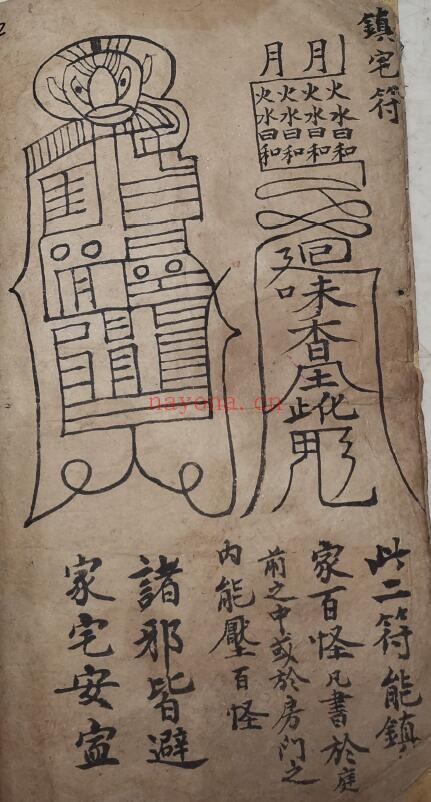 鎮宅符
月月
火水日和
火水日和
火水日和
火水日和
此二符能鎮
家百怪凡書於庭
前之中或於房門之
内能壓百怪
諸邪皆避
家宅安寍
nayona.cn